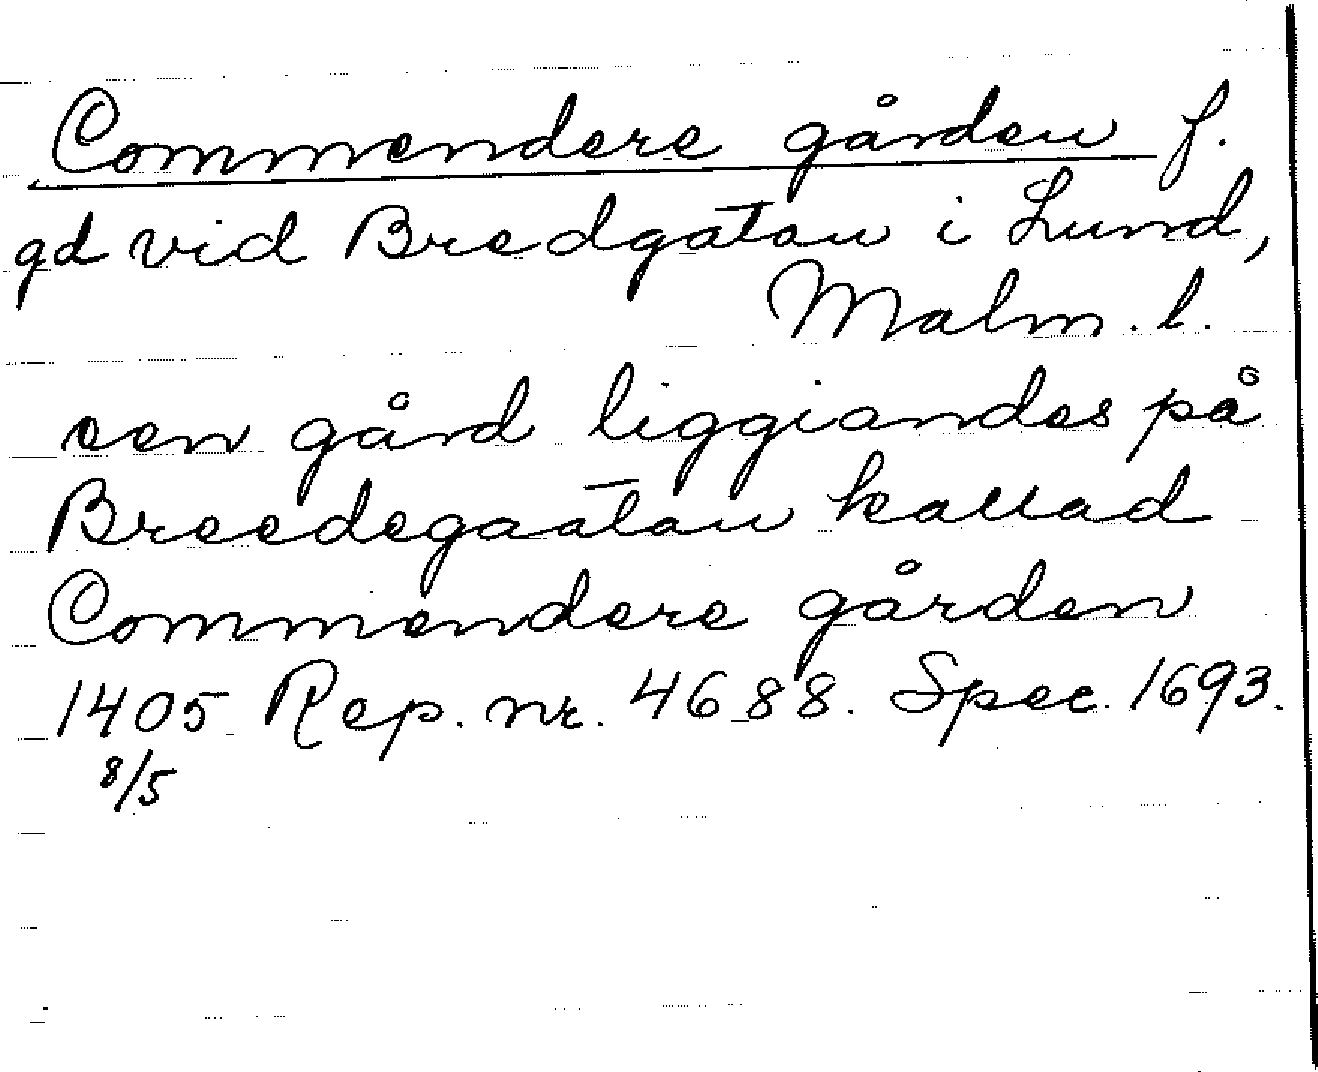 Commendere gården f.
gd vid Bredgatan i Lund,
Malm. l.
een gård liggiandes på
Breedegaatan kallad
Commendere gården
1405 Rep. nr. 4688. Spec. 1693.
8/5